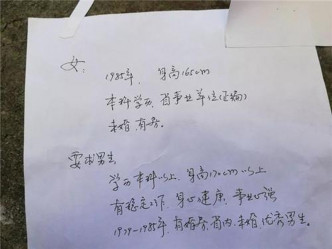 女:
1985年、身高165cm
本科学历、省事业单位(在编)
未婚、有房。
要求男生
学历本科以上、身高170cm以上
有稳定工作、身心健康、事业心强
1979-1985年、有婚房、省内、未婚优秀男生。